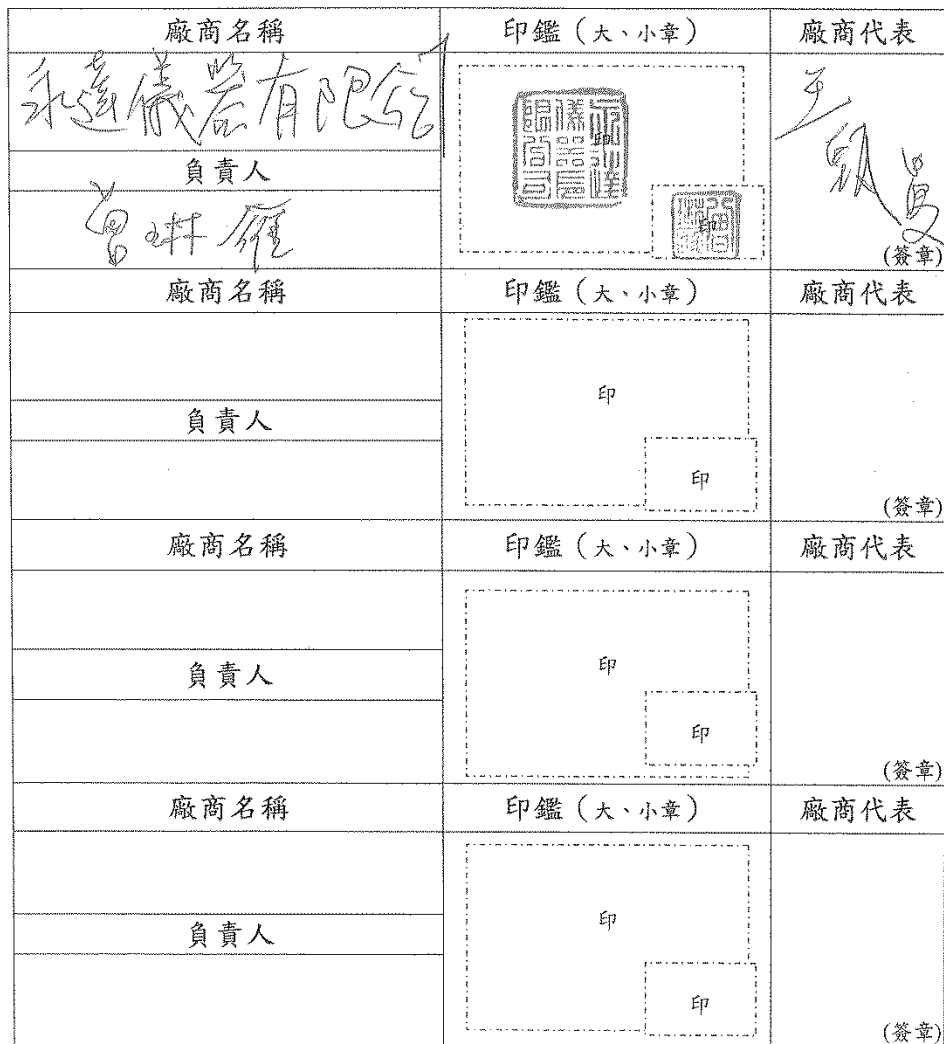 廠商名稱 印鑑（大、小章） 廠商代表
永達儀器有限公司
印
負責人
曾琳
印
(簽章)
廠商名稱 印鑑（大、小章） 廠商代表
印
負責人
印
(簽章)
廠商名稱 印鑑（大、小章） 廠商代表
印
負責人
印
(簽章)
廠商名稱 印鑑（大、小章） 廠商代表
印
負責人
印
(簽章)